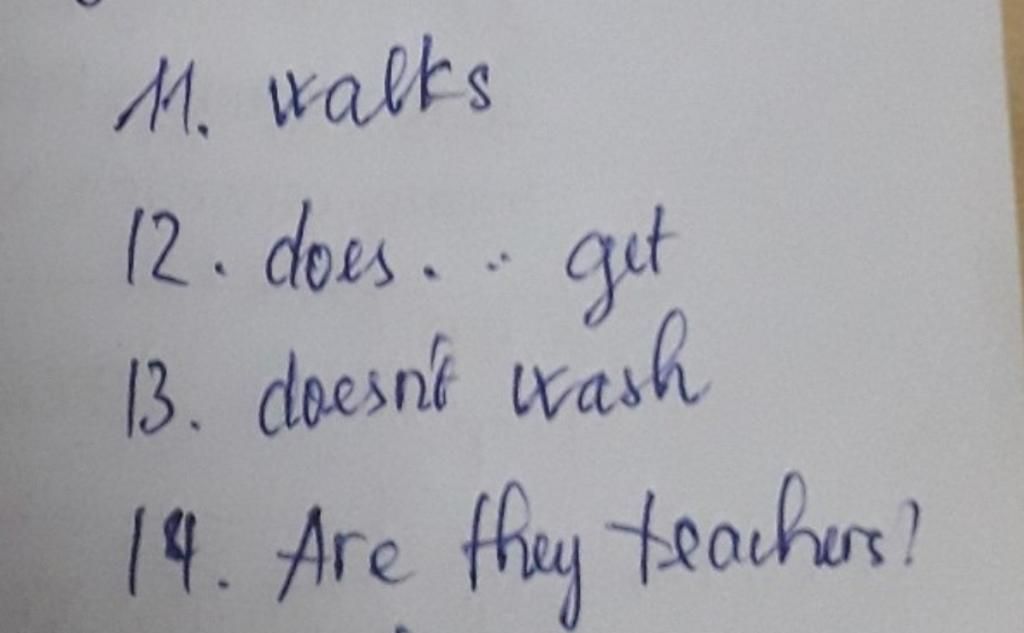 11. walks
12. does... get
13. doesn't wash
14. Are they teachers?